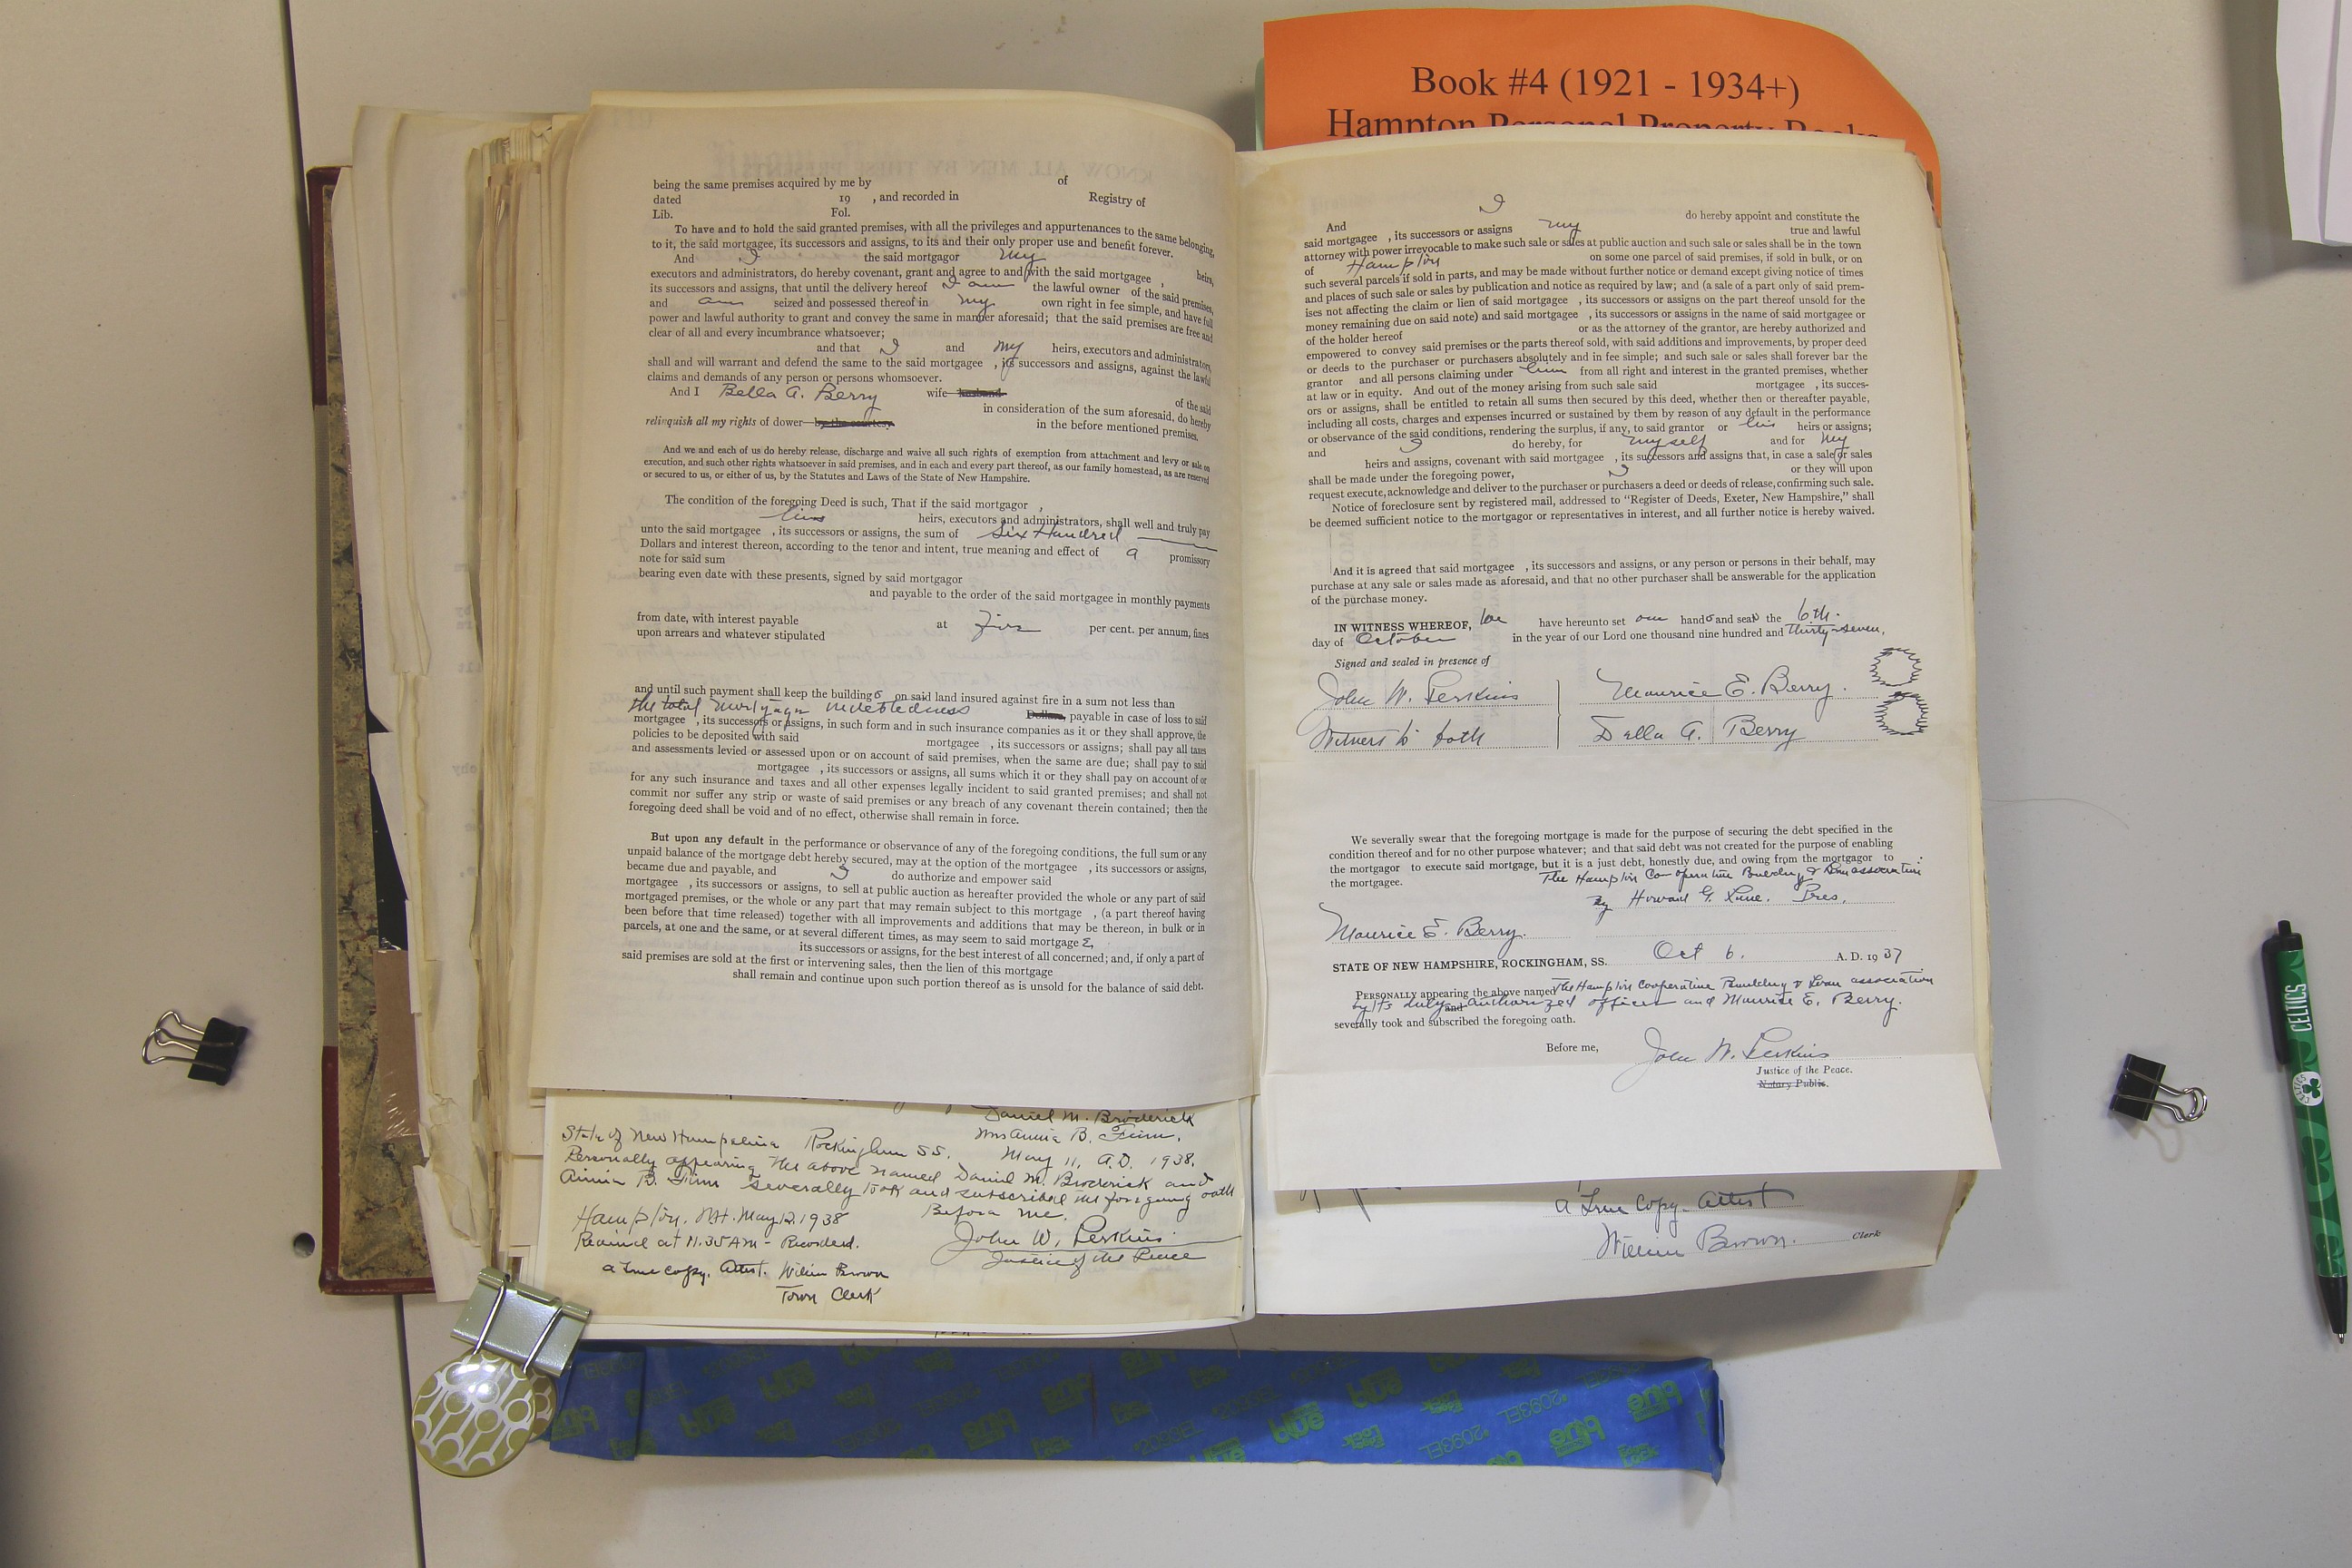 Book #4 (1921 - 1934+)
Hampton Personal Property Books
being the same premises acquired by me by of
dated 19 , and recorded in Registry of
Lib. Fol.
To have and to hold the said granted premises, with all the privileges and appurtenances to the same belonging,
to it, the said mortgagee, its successors and assigns, to its and their only proper use and benefit forever.
And I the said mortgagor my heirs,
executors and administrators, do hereby covenant, grant and agree to and with the said mortgagee ,
its successors and assigns, that until the delivery hereof I am the lawful owner of the said premises,
and am seized and possessed thereof in my own right in fee simple, and have full
power and lawful authority to grant and convey the same in manner aforesaid; that the said premises are free and
clear of all and every incumbrance whatsoever;
and that I and my heirs, executors and administrators,
shall and will warrant and defend the same to the said mortgagee , its successors and assigns, against the lawful
claims and demands of any person or persons whomsoever.
And I Bella A. Berry wife husband of the said
in consideration of the sum aforesaid, do hereby
relinquish all my rights of dower by the courtesy in the before mentioned premises.
And we and each of us do hereby release, discharge and waive all such rights of exemption from attachment and levy or sale on
execution, and such other rights whatsoever in said premises, and in each and every part thereof, as our family homestead, as are reserved
or secured to us, or either of us, by the Statutes and Laws of the State of New Hampshire.
The condition of the foregoing Deed is such, That if the said mortgagor ,
his heirs, executors and administrators, shall well and truly pay
unto the said mortgagee , its successors or assigns, the sum of Six Hundred
Dollars and interest thereon, according to the tenor and intent, true meaning and effect of a promissory
note for said sum
bearing even date with these presents, signed by said mortgagor
and payable to the order of the said mortgagee in monthly payments
from date, with interest payable at five per cent. per annum, fines
upon arrears and whatever stipulated
and until such payment shall keep the buildings on said land insured against fire in a sum not less than
the total mortgage indebtedness Dollars, payable in case of loss to said
mortgagee , its successors or assigns, in such form and in such insurance companies as it or they shall approve, the
policies to be deposited with said mortgagee , its successors or assigns; shall pay all taxes
and assessments levied or assessed upon or on account of said premises, when the same are due; shall pay to said
mortgagee , its successors or assigns, all sums which it or they shall pay on account of or
for any such insurance and taxes and all other expenses legally incident to said granted premises; and shall not
commit nor suffer any strip or waste of said premises or any breach of any covenant therein contained; then the
foregoing deed shall be void and of no effect, otherwise shall remain in force.
But upon any default in the performance or observance of any of the foregoing conditions, the full sum or any
unpaid balance of the mortgage debt hereby secured, may at the option of the mortgagee , its successors or assigns,
became due and payable, and I do authorize and empower said
mortgagee , its successors or assigns, to sell at public auction as hereafter provided the whole or any part of said
mortgaged premises, or the whole or any part that may remain subject to this mortgage , (a part thereof having
been before that time released) together with all improvements and additions that may be thereon, in bulk or in
parcels, at one and the same, or at several different times, as may seem to said mortgage E,
its successors or assigns, for the best interest of all concerned; and, if only a part of
said premises are sold at the first or intervening sales, then the lien of this mortgage
shall remain and continue upon such portion thereof as is unsold for the balance of said debt.
Daniel M. Broderick
Mrs Annie B. Finn.
State of New Hampshire Rockingham SS. May 11, A.D. 1938.
Personally appearing the above named Daniel M. Broderick and
Annie B. Finn severally took and subscribed the foregoing oath
Before me.
Hampton, NH. May 12, 1938
Received at 11.35 AM - Recorded. John W. Perkins
Justice of the Peace
a true copy. Attest. William Brown
Town Clerk
And I do hereby appoint and constitute the
said mortgagee , its successors or assigns my true and lawful
attorney with power irrevocable to make such sale or sales at public auction and such sale or sales shall be in the town
of Hampton on some one parcel of said premises, if sold in bulk, or on
such several parcels if sold in parts, and may be made without further notice or demand except giving notice of times
and places of such sale or sales by publication and notice as required by law; and (a sale of a part only of said prem-
ises not affecting the claim or lien of said mortgagee , its successors or assigns on the part thereof unsold for the
money remaining due on said note) and said mortgagee , its successors or assigns in the name of said mortgagee or
of the holder hereof or as the attorney of the grantor, are hereby authorized and
empowered to convey said premises or the parts thereof sold, with said additions and improvements, by proper deed
or deeds to the purchaser or purchasers absolutely and in fee simple; and such sale or sales shall forever bar the
grantor and all persons claiming under him from all right and interest in the granted premises, whether
at law or in equity. And out of the money arising from such sale said mortgagee , its succes-
ors or assigns, shall be entitled to retain all sums then secured by this deed, whether then or thereafter payable,
including all costs, charges and expenses incurred or sustained by them by reason of any default in the performance
or observance of the said conditions, rendering the surplus, if any, to said grantor or his heirs or assigns;
and I do hereby, for myself and for my
heirs and assigns, covenant with said mortgagee , its successors and assigns that, in case a sale or sales
shall be made under the foregoing power, I or they will upon
request execute, acknowledge and deliver to the purchaser or purchasers a deed or deeds of release, confirming such sale.
Notice of foreclosure sent by registered mail, addressed to "Register of Deeds, Exeter, New Hampshire," shall
be deemed sufficient notice to the mortgagor or representatives in interest, and all further notice is hereby waived.
And it is agreed that said mortgagee , its successors and assigns, or any person or persons in their behalf, may
purchase at any sale or sales made as aforesaid, and that no other purchaser shall be answerable for the application
of the purchase money.
IN WITNESS WHEREOF, we have hereunto set our hands and seals the 6th.
day of October in the year of our Lord one thousand nine hundred and thirty-seven.
Signed and sealed in presence of
John W. Perkins Maurice E. Berry.
Witness to both Della A. Berry
We severally swear that the foregoing mortgage is made for the purpose of securing the debt specified in the
condition thereof and for no other purpose whatever; and that said debt was not created for the purpose of enabling
the mortgagor to execute said mortgage, but it is a just debt, honestly due, and owing from the mortgagor to
the mortgagee. The Hampton Co-operative Building & Loan association
By Howard G. Lane. Pres.
Maurice E. Berry.
STATE OF NEW HAMPSHIRE, ROCKINGHAM, SS. Oct 6. A. D. 1937
PERSONALLY appearing the above named The Hampton Cooperative Building & Loan association
by its duly and authorized officer and Maurice E. Berry.
severally took and subscribed the foregoing oath.
Before me, John W. Perkins
Justice of the Peace.
Notary Public.
a True Copy. Attest
William Brown. Clerk
CELTICS